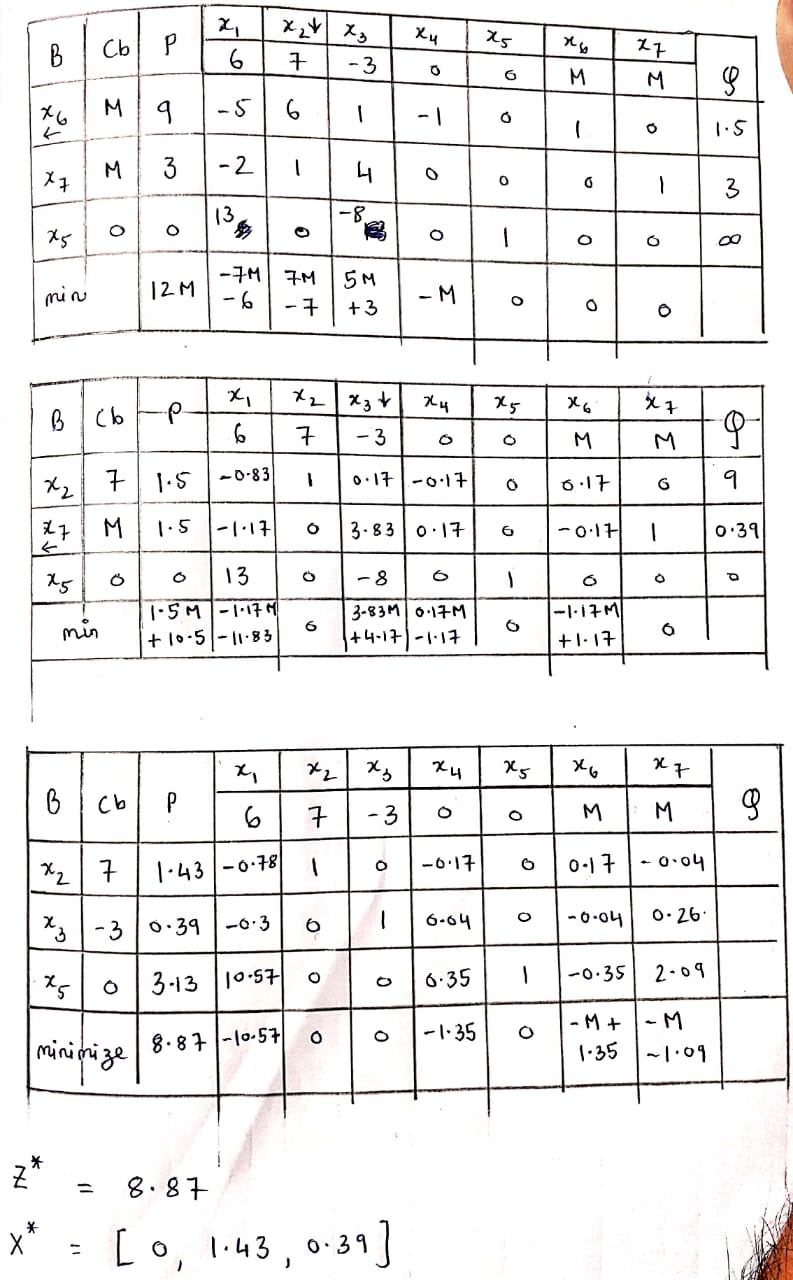 B Cb P x₁ x₂↓ x₃ x₄ x₅ x₆ x₇ φ
6 7 -3 0 0 M M
x₆ ← M 9 -5 6 1 -1 0 1 0 1.5
x₇ M 3 -2 1 4 0 0 0 1 3
x₅ 0 0 13 0 -8 0 1 0 0 ∞
min 12M -7M-6 7M-7 5M+3 -M 0 0 0
B Cb P x₁ x₂ x₃↓ x₄ x₅ x₆ x₇ φ
6 7 -3 0 0 M M
x₂ 7 1.5 -0.83 1 0.17 -0.17 0 0.17 0 9
x₇ ← M 1.5 -1.17 0 3.83 0.17 0 -0.17 1 0.39
x₅ 0 0 13 0 -8 0 1 0 0 0
min 1.5M+10.5 -1.17M-11.83 0 3.83M+4.17 0.17M-1.17 0 -1.17M+1.17 0
B Cb P x₁ x₂ x₃ x₄ x₅ x₆ x₇ φ
6 7 -3 0 0 M M
x₂ 7 1.43 -0.78 1 0 -0.17 0 0.17 -0.04
x₃ -3 0.39 -0.3 0 1 0.04 0 -0.04 0.26
x₅ 0 3.13 10.57 0 0 0.35 1 -0.35 2.09
minimize 8.87 -10.57 0 0 -1.35 0 -M+1.35 -M-1.09
Z* = 8.87
X* = [0, 1.43, 0.39]